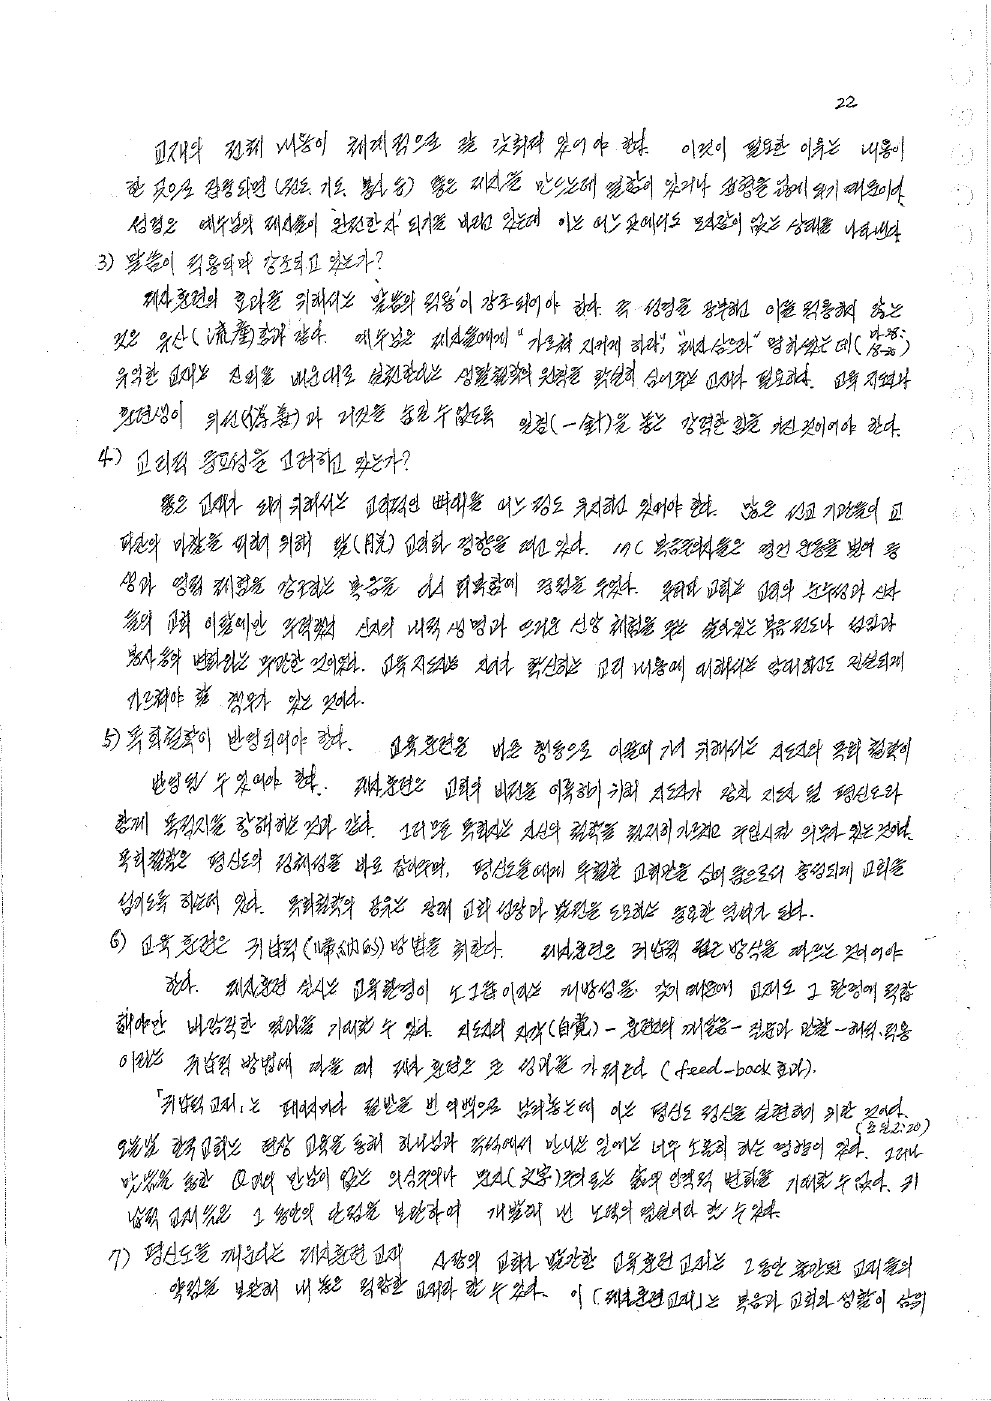 22
교재의 전체 내용이 체계적으로 잘 갖춰져 있어야 한다. 이것이 필요한 이유는 내용이
한 곳으로 편중되면 (전도, 기도, 봉사 등) 좋은 제자를 만드는데 결함이 있거나 균형을 잃게 되기 때문이다.
성경은 예수님의 제자들이 '완전한 자' 되기를 바라고 있는데 이는 어느 것에도 모자람이 없는 상태를 나타낸다
3) 말씀이 적용되며 강조되고 있는가?
제자훈련의 효과를 위해서는 '말씀의 적용'이 강조되어야 한다. 즉 성경을 공부하고 이를 적용하지 않는
것은 유산(流産)함과 같다. 예수님은 제자들에게 "가르쳐 지키게 하라", "제자 삼으라" 명하셨는데 (마 28:18-20)
유익한 교재는 진리를 배운대로 실천한다는 생활철학의 원칙을 확실히 심어주는 교재가 필요하다. 교육 지도자나
훈련생이 위선(僞善)과 거짓을 숨길 수 없도록 일침(一針)을 놓는 강력한 힘을 가진 것이어야 한다.
4) 교리적 중요성을 고려하고 있는가?
좋은 교재가 되기 위해서는 교리적인 뼈대를 어느 정도 유지하고 있어야 한다. 많은 선교 기관들이 교
파간의 마찰을 피하기 위해 탈(脫) 교리화 경향을 띠고 있다. 17C 복음주의자들은 경건 운동을 벌여 중
생과 영적 체험을 강조하는 복음을 다시 회복함에 중점을 두었다. 우리 교회는 교리의 순수성과 신자
들의 교회 이탈에만 주력했지 신자의 내적 생명과 뜨거운 신앙 체험을 주는 살아있는 복음 전도나 섬김과
봉사 등의 변화와는 무관한 것이었다. 교육 지도자는 자기가 확신하는 교리 내용에 대해서는 담대하고도 진실되게
가르쳐야 할 책무가 있는 것이다.
5) 목회철학이 반영되어야 한다. 교육 훈련을 바른 행동으로 이끌어 가기 위해서는 지도자의 목회 철학이
반영될 수 있어야 한다. 제자훈련은 교회의 비전을 이룩하기 위해 지도자가 장차 지도자 될 평신도와
함께 목적지를 향해하는 것과 같다. 그러므로 목회자는 자신의 철학을 철저히 가르치고 주입시킬 의무가 있는 것이다.
목회철학은 평신도의 정체성을 바로 잡아주며, 평신도들에게 투철한 교회관을 심어 줌으로서 충성되게 교회를
섬기도록 하는데 있다. 목회철학의 공유는 장래 교회 성장과 발전을 도모하는 중요한 열쇠가 된다.
6) 교육 훈련은 귀납적(歸納的) 방법을 취한다. 제자훈련은 귀납적 접근 방식을 따르는 것이어야
한다. 제자훈련 실시는 교육환경이 소그룹이라는 개방성을 갖기 때문에 교재도 그 환경에 적합
해야만 바람직한 결과를 기대할 수 있다. 지도자의 자각(自覺) - 훈련생의 깨달음 - 질문과 관찰 - 해석, 적용
이라는 귀납적 방법에 따를 때 제자훈련은 큰 성과를 가져온다 (feed-back 효과).
「귀납적 교재」는 페이지마다 절반을 빈 여백으로 남겨놓는데 이는 평신도 정신을 실현하기 위한 것이다.
(요일 2:20)
오늘날 한국교회는 현장 교육을 통해 하나님과 죄악에서 만나는 일에는 너무 소홀히 하는 경향이 있다. 그러나
말씀을 통한 예수의 만남이 없는 의식주의나 문자(文字)주의로는 삶의 인격적 변화를 기대할 수 없다. 귀
납적 교재들은 그 동안의 단점을 보완하여 개발해 낸 노력의 결실이라 할 수 있다.
7) 평신도를 깨운다는 제자훈련 교재 사랑의 교회가 발간한 교육훈련 교재는 그 동안 출간된 교재들의
약점을 보완해 내놓은 적합한 교재라 할 수 있다. 이 「제자훈련 교재」는 복음과 교회와 생활이 삼위